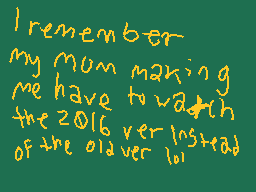 I remember
my mom making
me have to watch
the 2016 ver instead
of the old ver lol